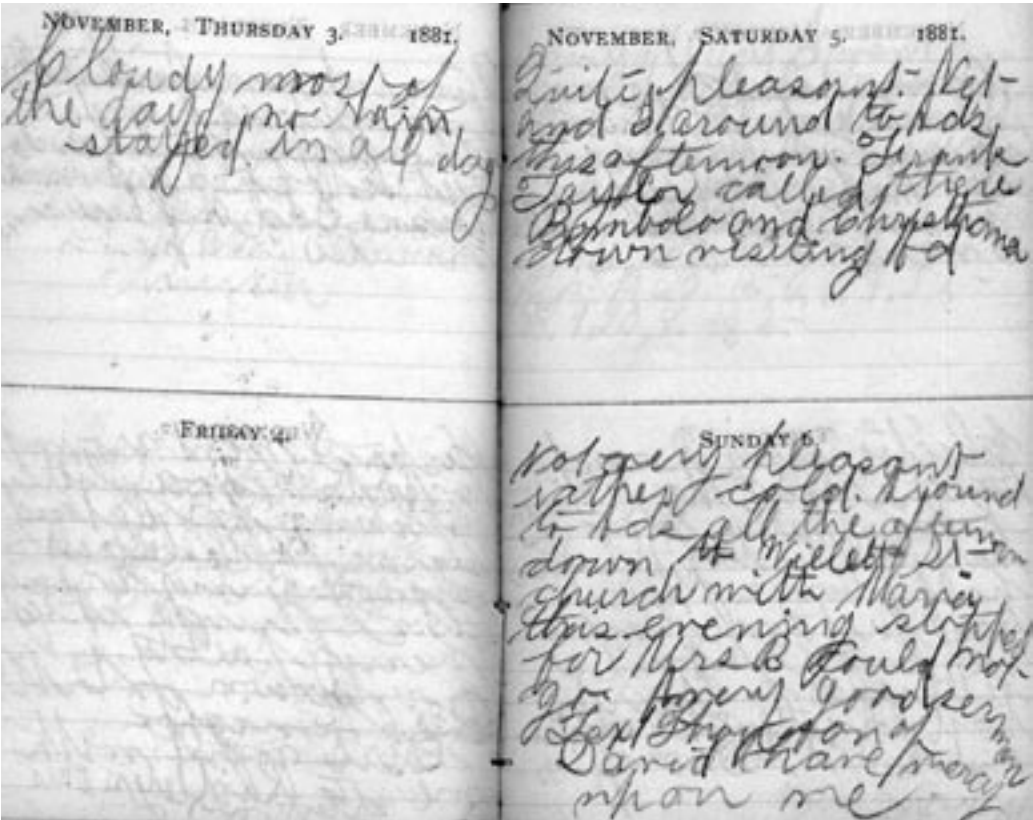 NOVEMBER, THURSDAY 3. 1881.
Cloudy most of
the day no rain
stayed in all day
FRIDAY 4.
NOVEMBER, SATURDAY 5. 1881.
Quite pleasant. Net
and I around to Ads
this afternoon. Frank
Taylor called there
and Christiana
down visiting Ad
SUNDAY 6.
Not very pleasant
rather cold. Around
to Ads all the afternoon
down to Willett St
church with Maria
this evening stopped
for Mrs B could not
go A very good sermon
Text Son of
David have mercy
upon me